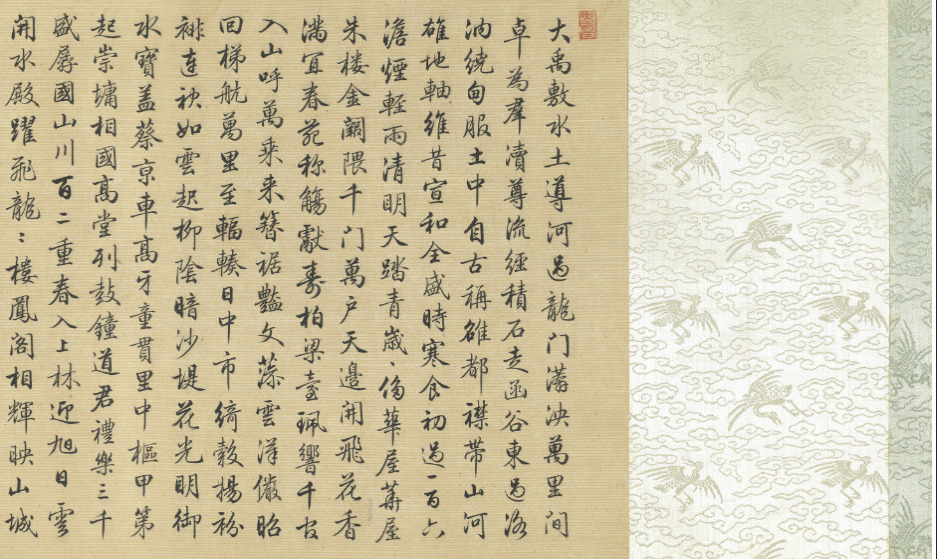 大禹敷水土導河過龍门泱萬里间
卓為羣瀆尊流經積石走函谷東過洛
汭繞甸服土中自古稱雒都襟带山河
雄地軸維昔宣和全盛時寒食初過一百六
澹煙輕雨清明天踏青歲〻侈華屋華屋
朱楼金闕隈千门萬户天邊開飛花香
滿宜春苑称觴獻壽柏梁臺珮響千官
入山呼萬乘来簪裾艷文藻雲漢儼昭
回梯航萬里至輻輳日中市綺縠揚紛
裶連袂如雲起柳陰暗沙堤花光明御
水寶盖蔡京車高牙童貫里中樞甲第
起崇墉相國高堂列鼓鐘道君禮樂三千
盛孱國山川百二重春入上林迎旭日雲
開水殿躍飛龍〻樓鳳阁相輝映山城